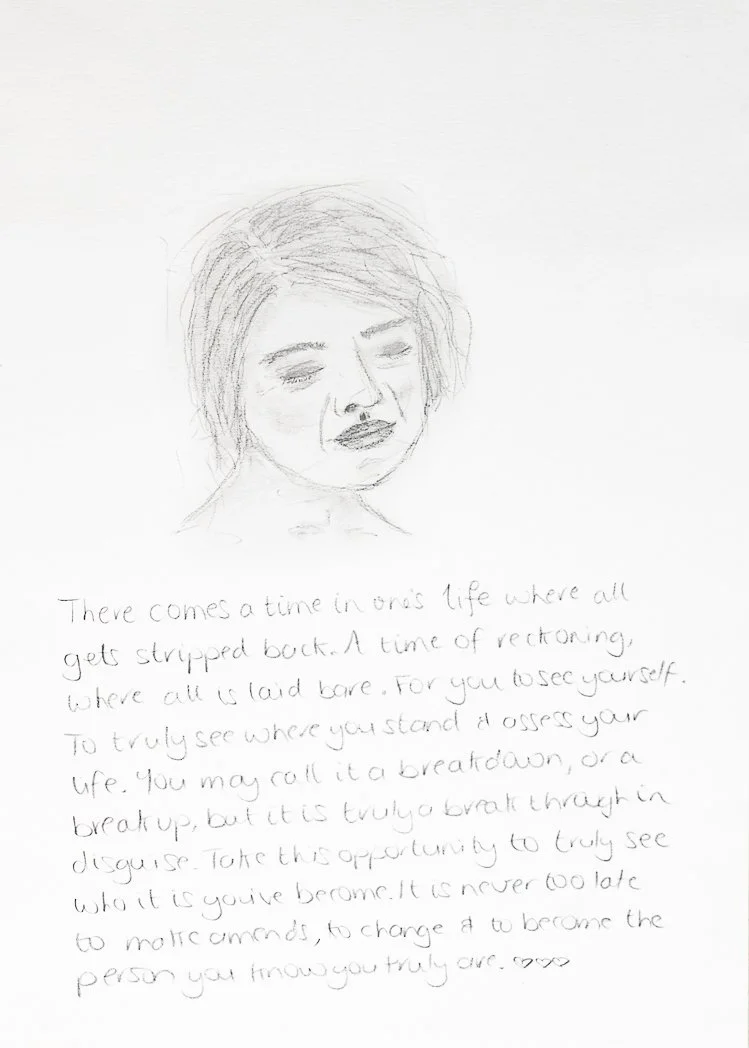 There comes a time in one's life where all
gets stripped back. A time of reckoning,
where all is laid bare. For you to see yourself.
To truly see where you stand & assess your
life. You may call it a breakdown, or a
breakup, but it is truly a break through in
disguise. Take this opportunity to truly see
who it is you've become. It is never too late
to make amends, to change & to become the
person you know you truly are. ♡♡♡